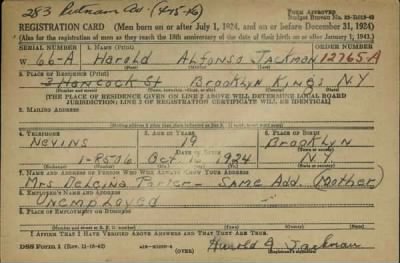 283 Putnam Av. (4-75-46)
FORM APPROVED
REGISTRATION CARD (Men born on or after July 1, 1924, and on or before December 31, 1924)
(Also for the registration of men as they reach the 18th anniversary of the date of their birth on or after January 1, 1943.)
SERIAL NUMBER 1. NAME (Print) ORDER NUMBER
W 66-A Harold Alfonso Jackman 12765A
2. PLACE OF RESIDENCE (Print)
3 Hancock St Brooklyn Kings N.Y
[THE PLACE OF RESIDENCE GIVEN ON LINE 2 ABOVE WILL DETERMINE LOCAL BOARD
JURISDICTION; LINE 2 OF REGISTRATION CERTIFICATE WILL BE IDENTICAL]
3. MAILING ADDRESS
4. TELEPHONE 5. AGE IN YEARS 6. PLACE OF BIRTH
Nevins 19 Brooklyn
DATE OF BIRTH
Oct 1924 N.Y.
7. NAME AND ADDRESS OF PERSON WHO WILL ALWAYS KNOW YOUR ADDRESS
Mrs Delcina Porter - Same Add. (Mother)
8. EMPLOYER'S NAME AND ADDRESS
Unemployed
9. PLACE OF EMPLOYMENT OR BUSINESS
I AFFIRM THAT I HAVE VERIFIED ABOVE ANSWERS AND THAT THEY ARE TRUE.
DSS Form 1 (OVER) Harold A Jackman